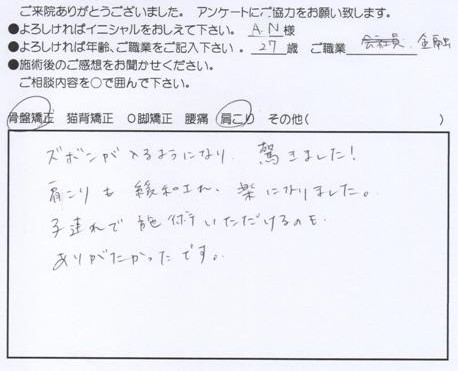 ご来院ありがとうございました。 アンケートにご協力をお願い致します。
●よろしければイニシャルをおしえて下さい。 A.N 様
●よろしければ年齢、ご職業をご記入下さい。 27 歳 ご職業 会社員
●施術後のご感想をお聞かせください。
ご相談内容を○で囲んで下さい。
骨盤矯正 猫背矯正 O脚矯正 腰痛 肩こり その他( )
ズボンが入るようになり、驚きました!
肩こりも緩和され、楽になりました。
子連れで施術いただけるのも
ありがたかったです。